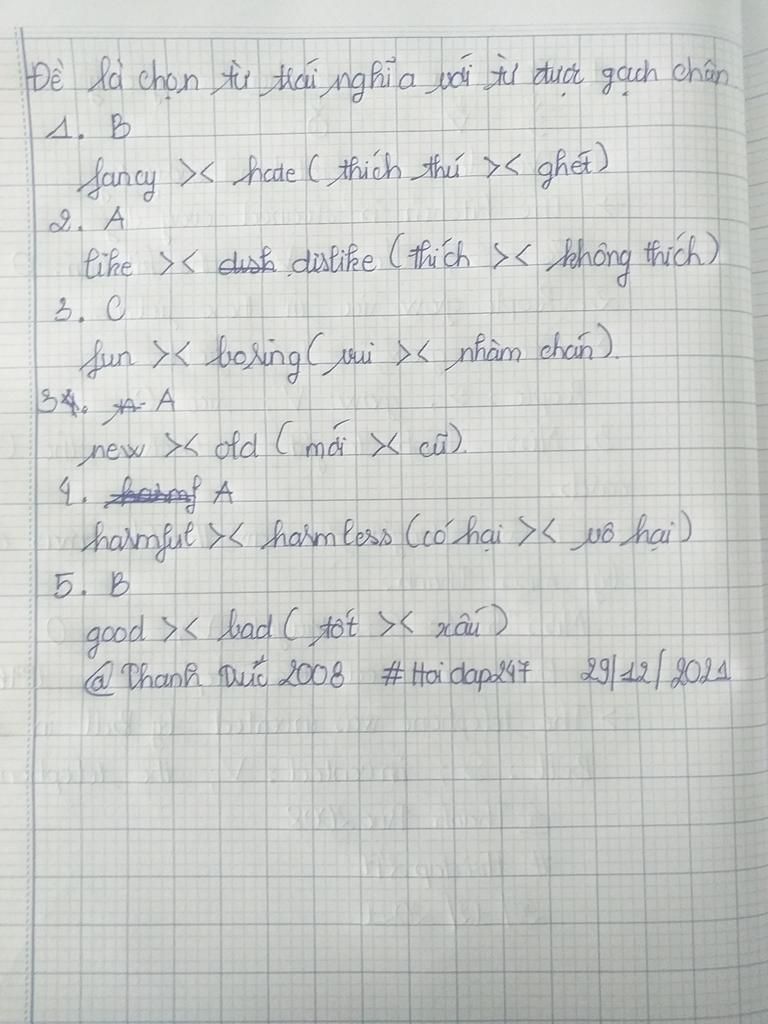 Đề là chọn từ trái nghĩa với từ được gạch chân
1. B
fancy >< hate ( thích thú >< ghét)
2. A
like >< dislike (thích >< không thích)
3. C
fun >< boring ( vui >< nhàm chán).
34. A
new >< old ( mới >< cũ).
4. A
harmful >< harmless (có hại >< vô hại)
5. B
good >< bad ( tốt >< xấu)
@ Thanh Đức 2008 #Hoidap247 29/12/2021